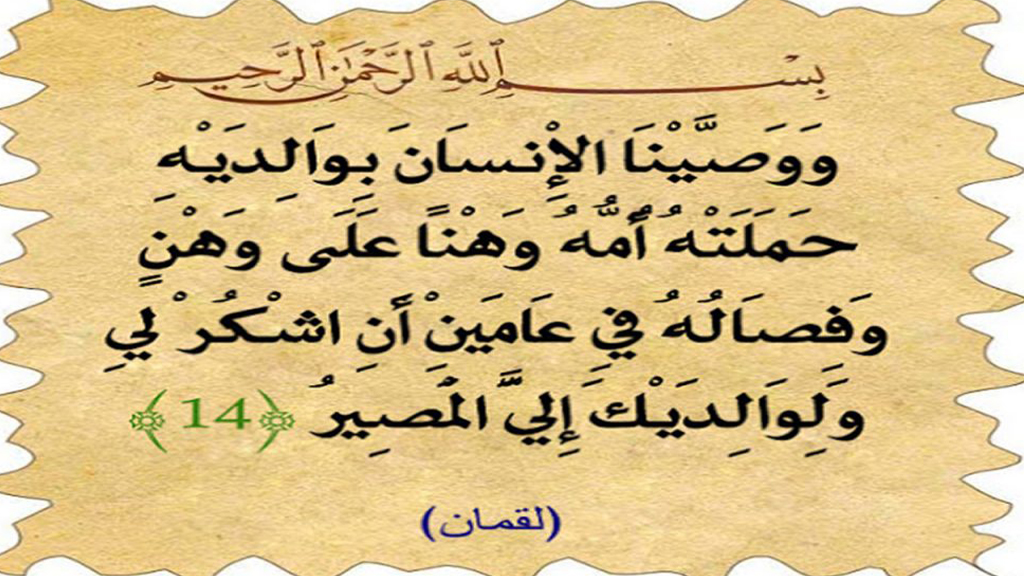 بِسْمِ ٱللَّهِ ٱلرَّحْمَٰنِ ٱلرَّحِيمِ
وَوَصَّيْنَا الْإِنسَانَ بِوَالِدَيْهِ
حَمَلَتْهُ أُمُّهُ وَهْنًا عَلَى وَهْنٍ
وَفِصَالُهُ فِي عَامَيْنِ أَنِ اشْكُرْ لِي
وَلِوَالِدَيْكَ إِلَيَّ الْمَصِيرُ ﴿14﴾
(لقمان)